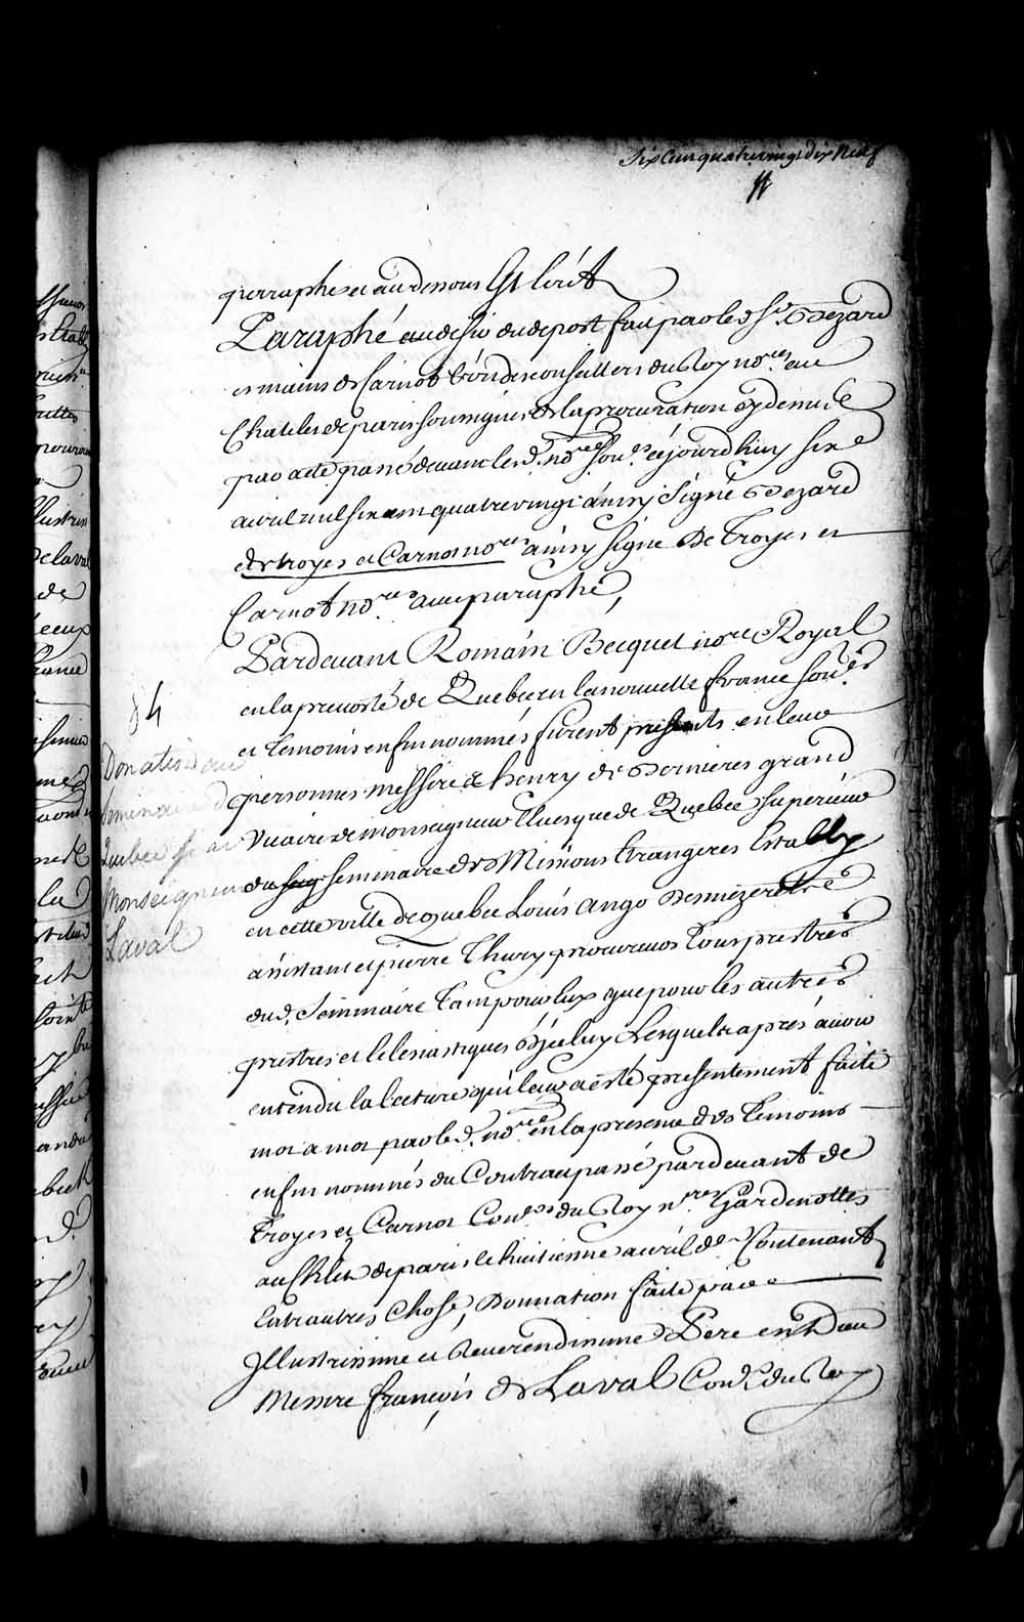 Six Cens quatre vingt dix Neuf
parraphe et au dessous Est Ecrit
Paraphé au desir du depost fait par led. Sr. Dezard
es mains de Carnot l'un des conseillers du Roy nores. au
Chatelet de paris soussignés de la procuration cy dessus
par acte passé devant lesd. nores. sous.es cejourdhuy six e
avril mil six cens quatre vingt ainsy Signé Dezard
de troyes et Carnot nores ainsy signé De Troyes et
Carnot nores avec paraphe,
Pardevant Romain Becquet nore Royal
en la prevosté de Quebec en la nouvelle france sous.né
et temoins enfin nommés furent presents en leur
personnes messire henry de Bernieres grand
Vicaire de monseigneur l'Evesque de Quebec Superieur
du Seminaire des Missions Etrangeres Estably
en cette ville de quebec Louis ango Desmezerets
assistant et pierre Thury procureur tous prestres
dud. Seminaire tant pour eux que pour les autres
prestres et Eclesiastiques d'Jceluy Lesquels apres avoir
entendu la lecture qui leur a esté presentement faite
mot a mot par led. nore. en la presence des temoins
enfin nommés du Contract passé pardevant de
Troyes et Carnot Cons.ers du Roy n.res Gardenottes
au Chlet de paris le huitieme avril d.er Contenant
Entr autres Chose, Donnation faite par
Jllustrissime et Reverendissime Pere en Dieu
Messire françois de Laval Con.er du Roy
84
Donation au
Seminaire de
Quebec par
Monseigneur
Laval